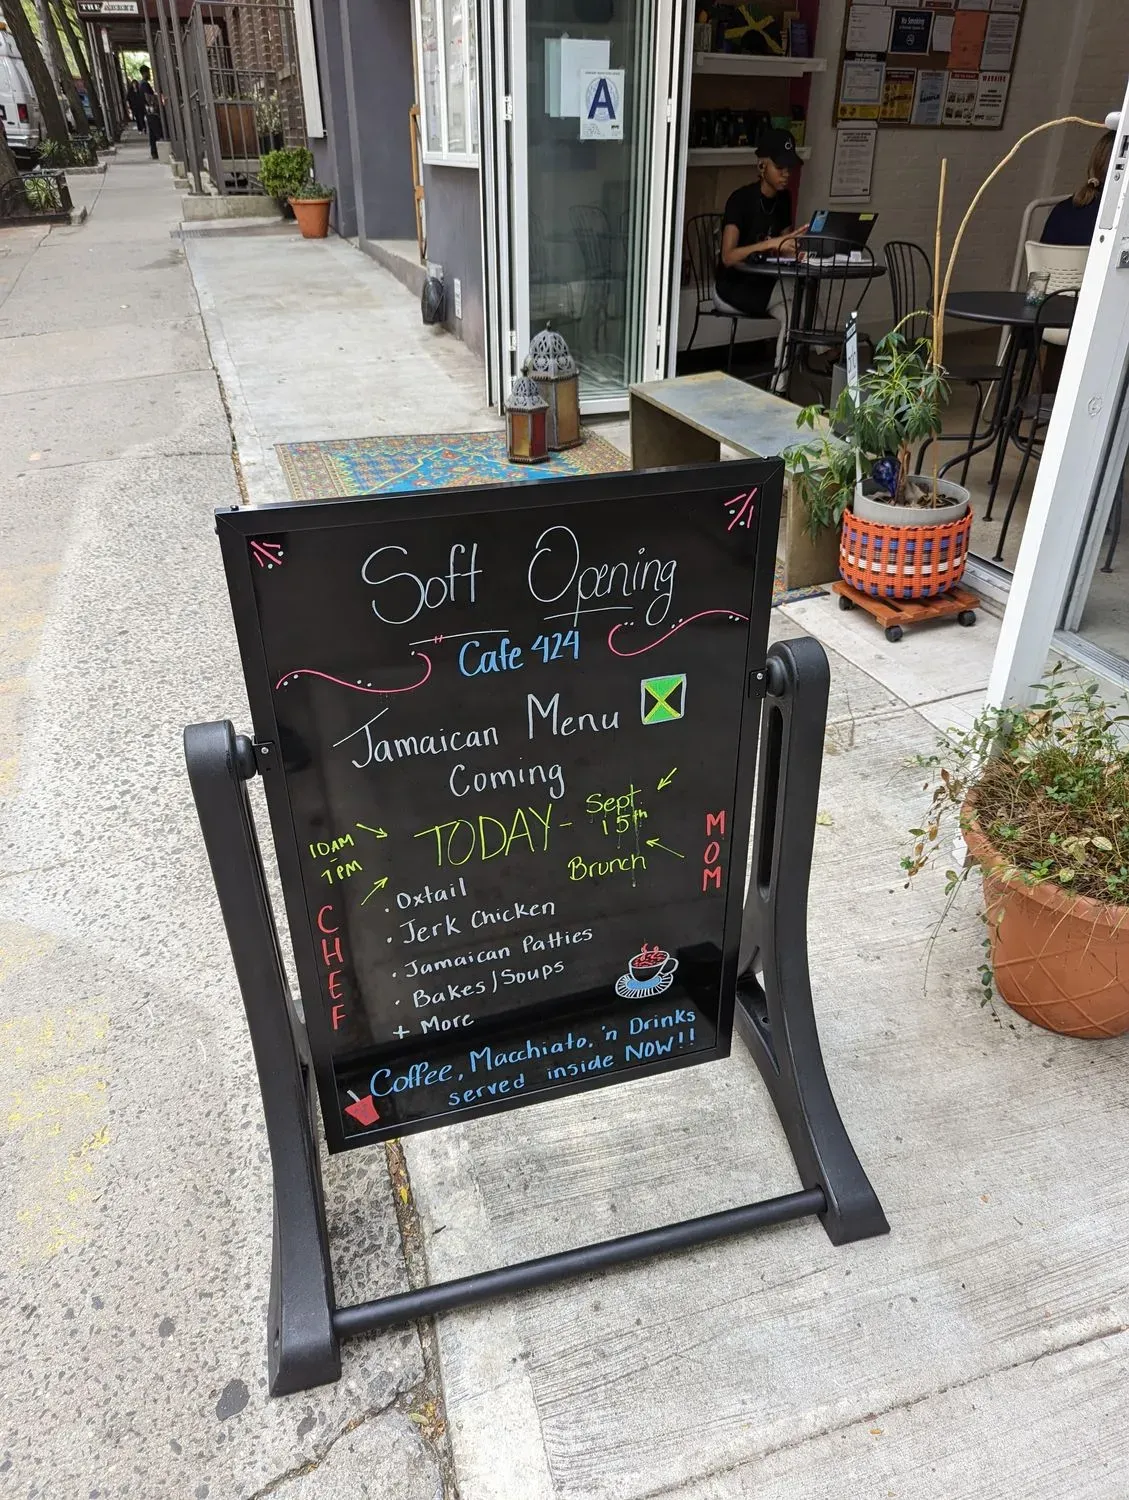 THE ABBEY
A
No Smoking
WARNING
Soft Opening
Cafe 424
Jamaican Menu
Coming
TODAY - Sept 15th
Brunch
10AM - 7PM
CHEF
MOM
· Oxtail
· Jerk Chicken
· Jamaican Patties
· Bakes/Soups
+ More
Coffee, Macchiato, 'n Drinks
served inside NOW!!